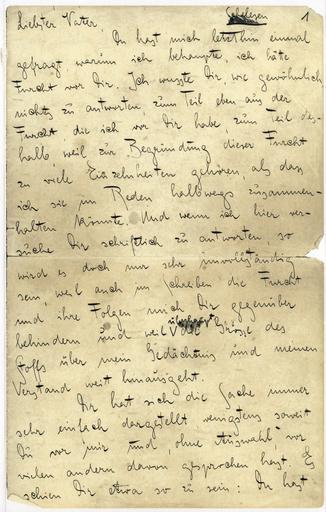 Liebster Vater,
Du hast mich letzthin einmal 1
gefragt, warum ich behaupte, ich hätte
Furcht vor Dir. Ich wusste Dir, wie gewöhnlich,
nichts zu antworten, zum Teil eben aus der
Furcht die ich vor Dir habe, zum Teil des-
halb, weil zur Begründung dieser Furcht
zu viele Einzelnheiten gehören, als dass
ich sie im Reden halbwegs zusammen-
halten könnte. Und wenn ich hier ver-
suche Dir schriftlich zu antworten, so
wird es doch nur sehr unvollständig
sein, weil auch im Schreiben die Furcht
und ihre Folgen mich Dir gegenüber
behindern und weil die Grösse des
Stoffs über mein Gedächtnis und meinen
Verstand weit hinausgeht.
Dir hat sich die Sache immer
sehr einfach dargestellt, wenigstens soweit
Du vor mir und, ohne Auswahl, vor
vielen andern davon gesprochen hast. Es
schien Dir etwa so zu sein: Du hast